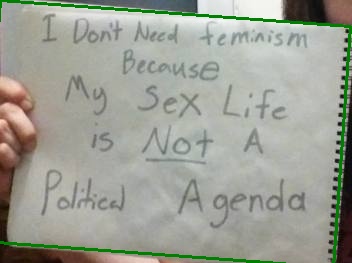 I Don't Need feminism
Because
My Sex Life
is Not A
Political Agenda